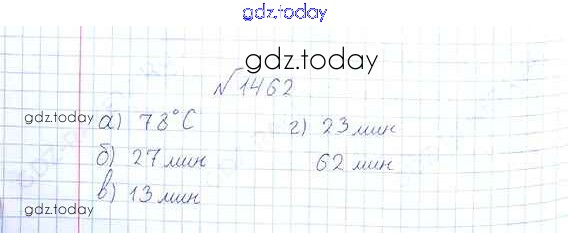 gdz.today
gdz.today
№1462
gdz.today
а) 78°С
б) 27 мин
в) 13 мин
г) 23 мин
62 мин
gdz.today